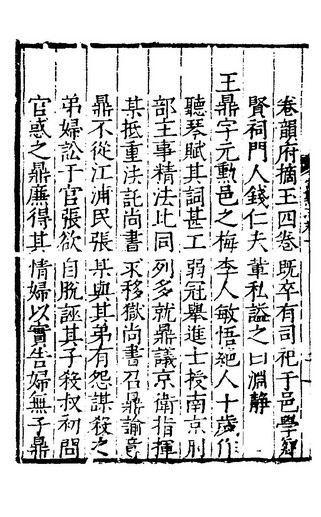 卷韻府摘玉四卷既卒有司祀于邑學鄉
賢祠門人錢仁夫輩私謚之曰淵靜
王鼎字元勳邑之梅李人敏悟絕人十歲作
聽琴賦其詞甚工弱冠舉進士授南京刑
部主事精法比同列多就鼎議京衛指揮
某抵重法託尚書求移獄尚書召鼎諭意
鼎不從江浦民張某與其弟有怨謀殺之
弟婦訟于官張欲自脫誣其子殺叔初問
官惑之鼎廉得其情婦以實告婦無子鼎